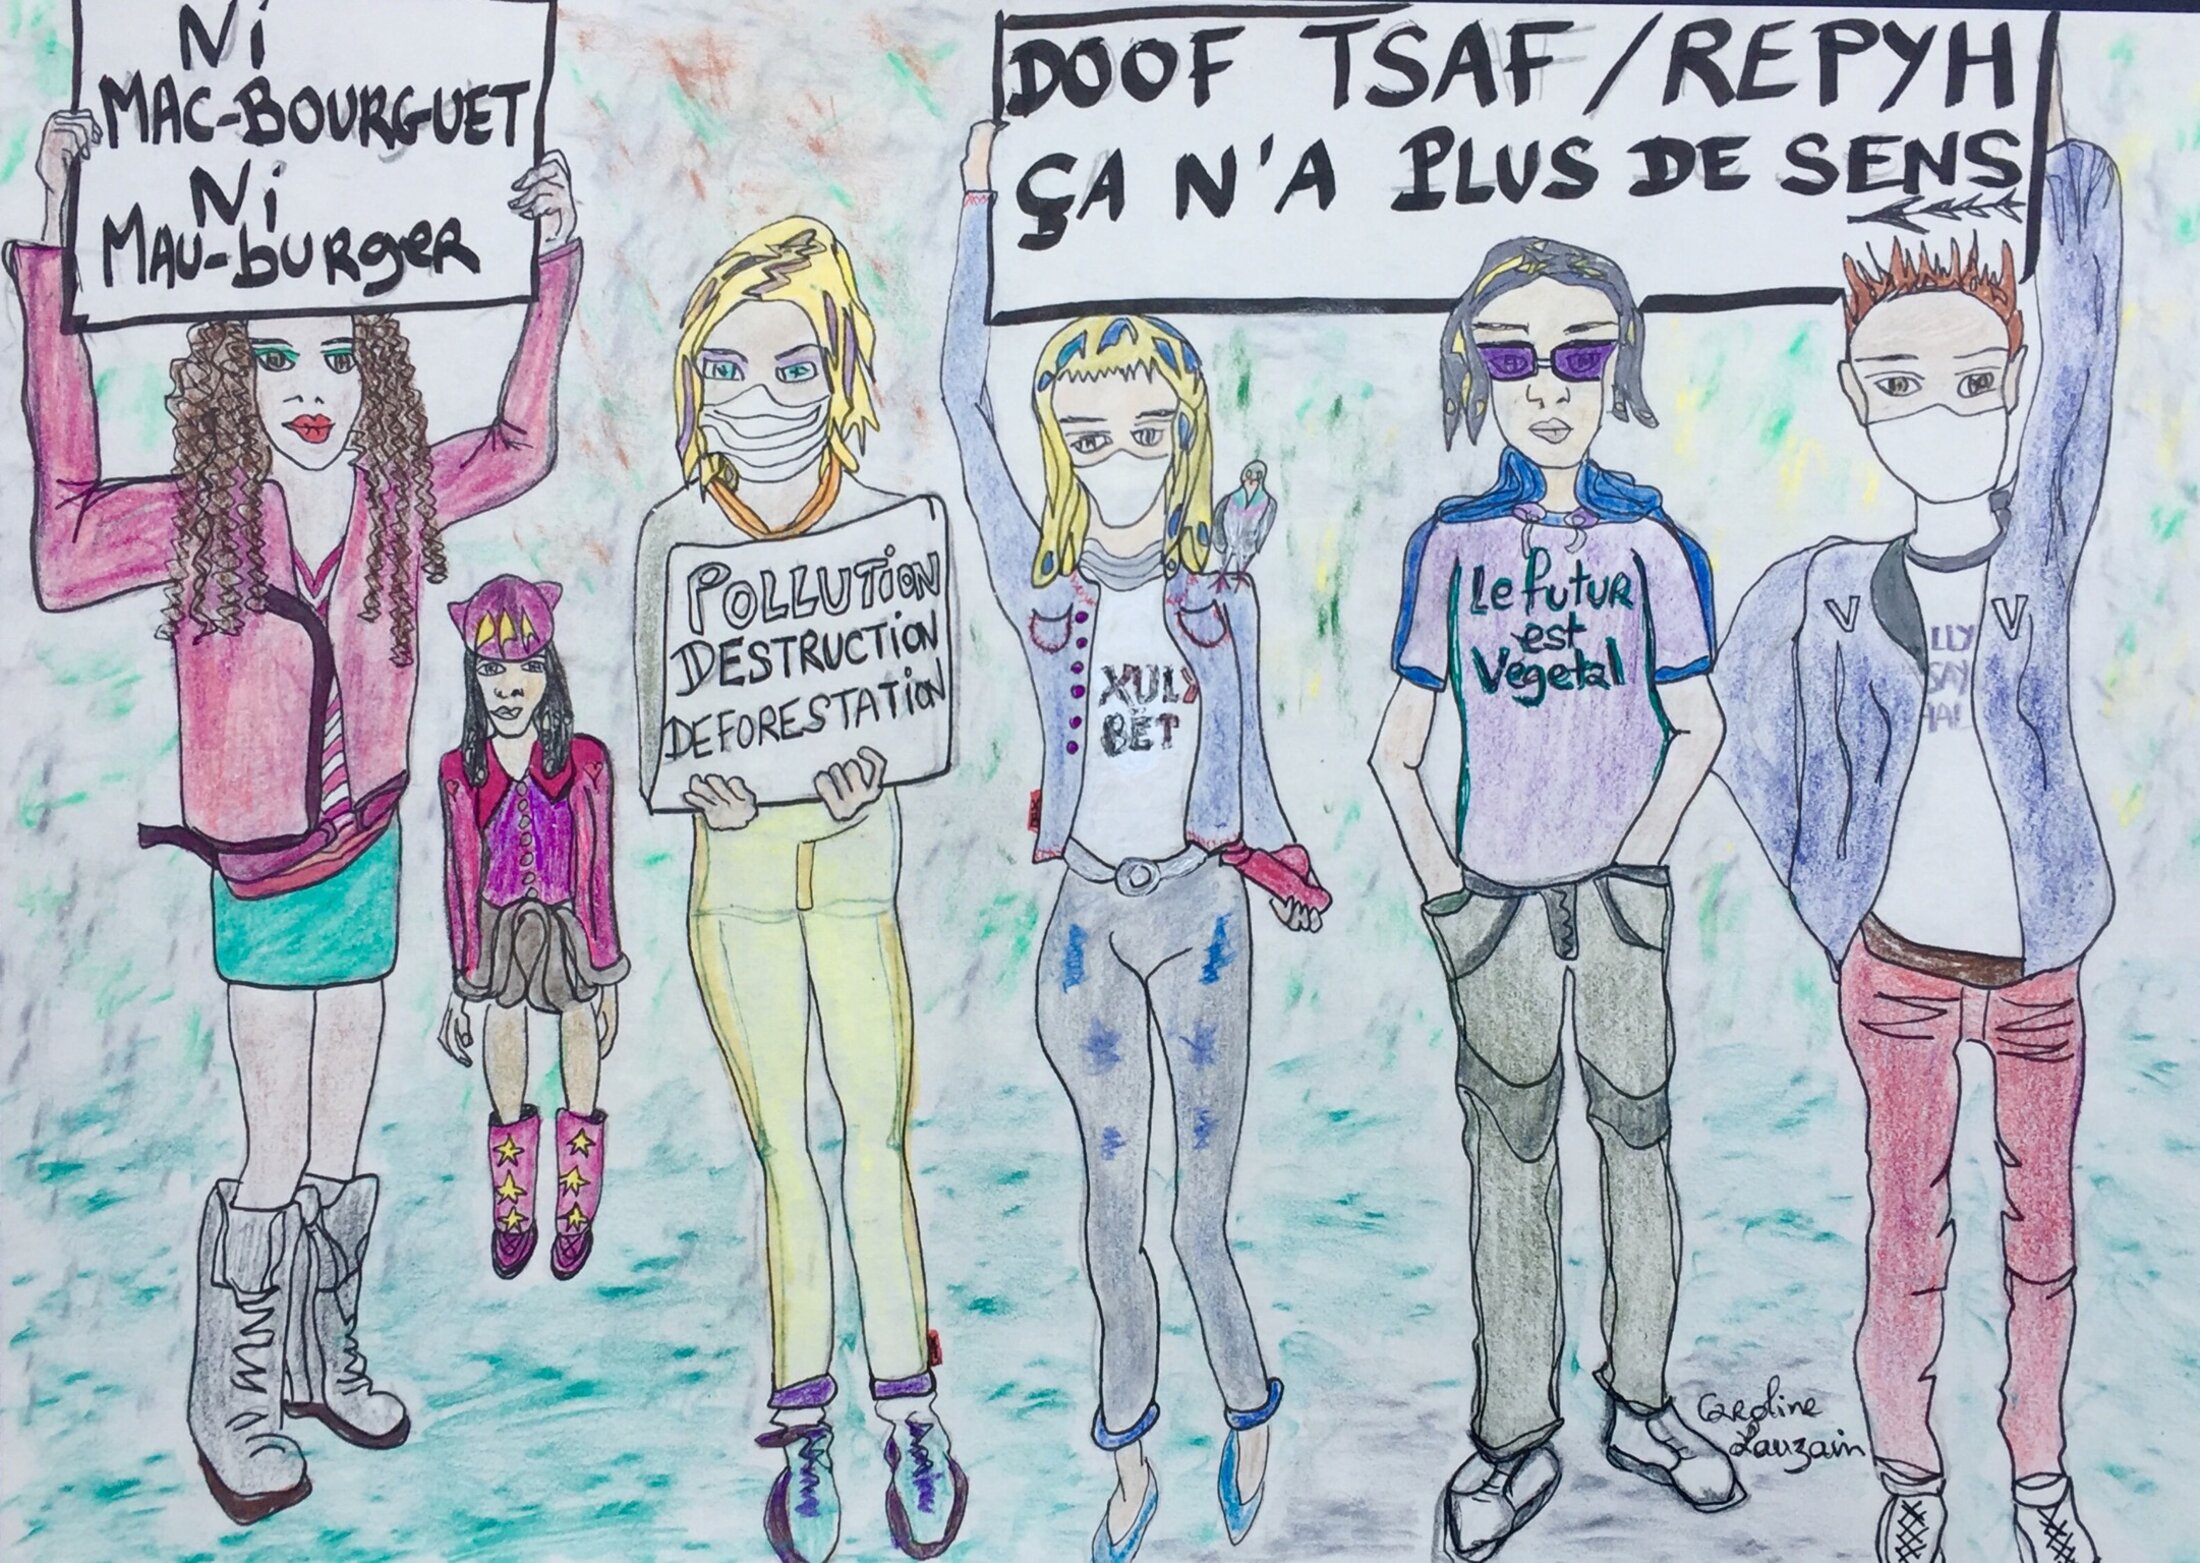 Ni
MAC-BOURGUET
Ni
MAU-burger
DOOF TSAF/REPYH
ÇA N'A PLUS DE SENS
POLLUTION
DESTRUCTION
DEFORESTATION
XULY
BËT
Le futur
est
Végétal
LLY
SAY
Caroline
Lauzain